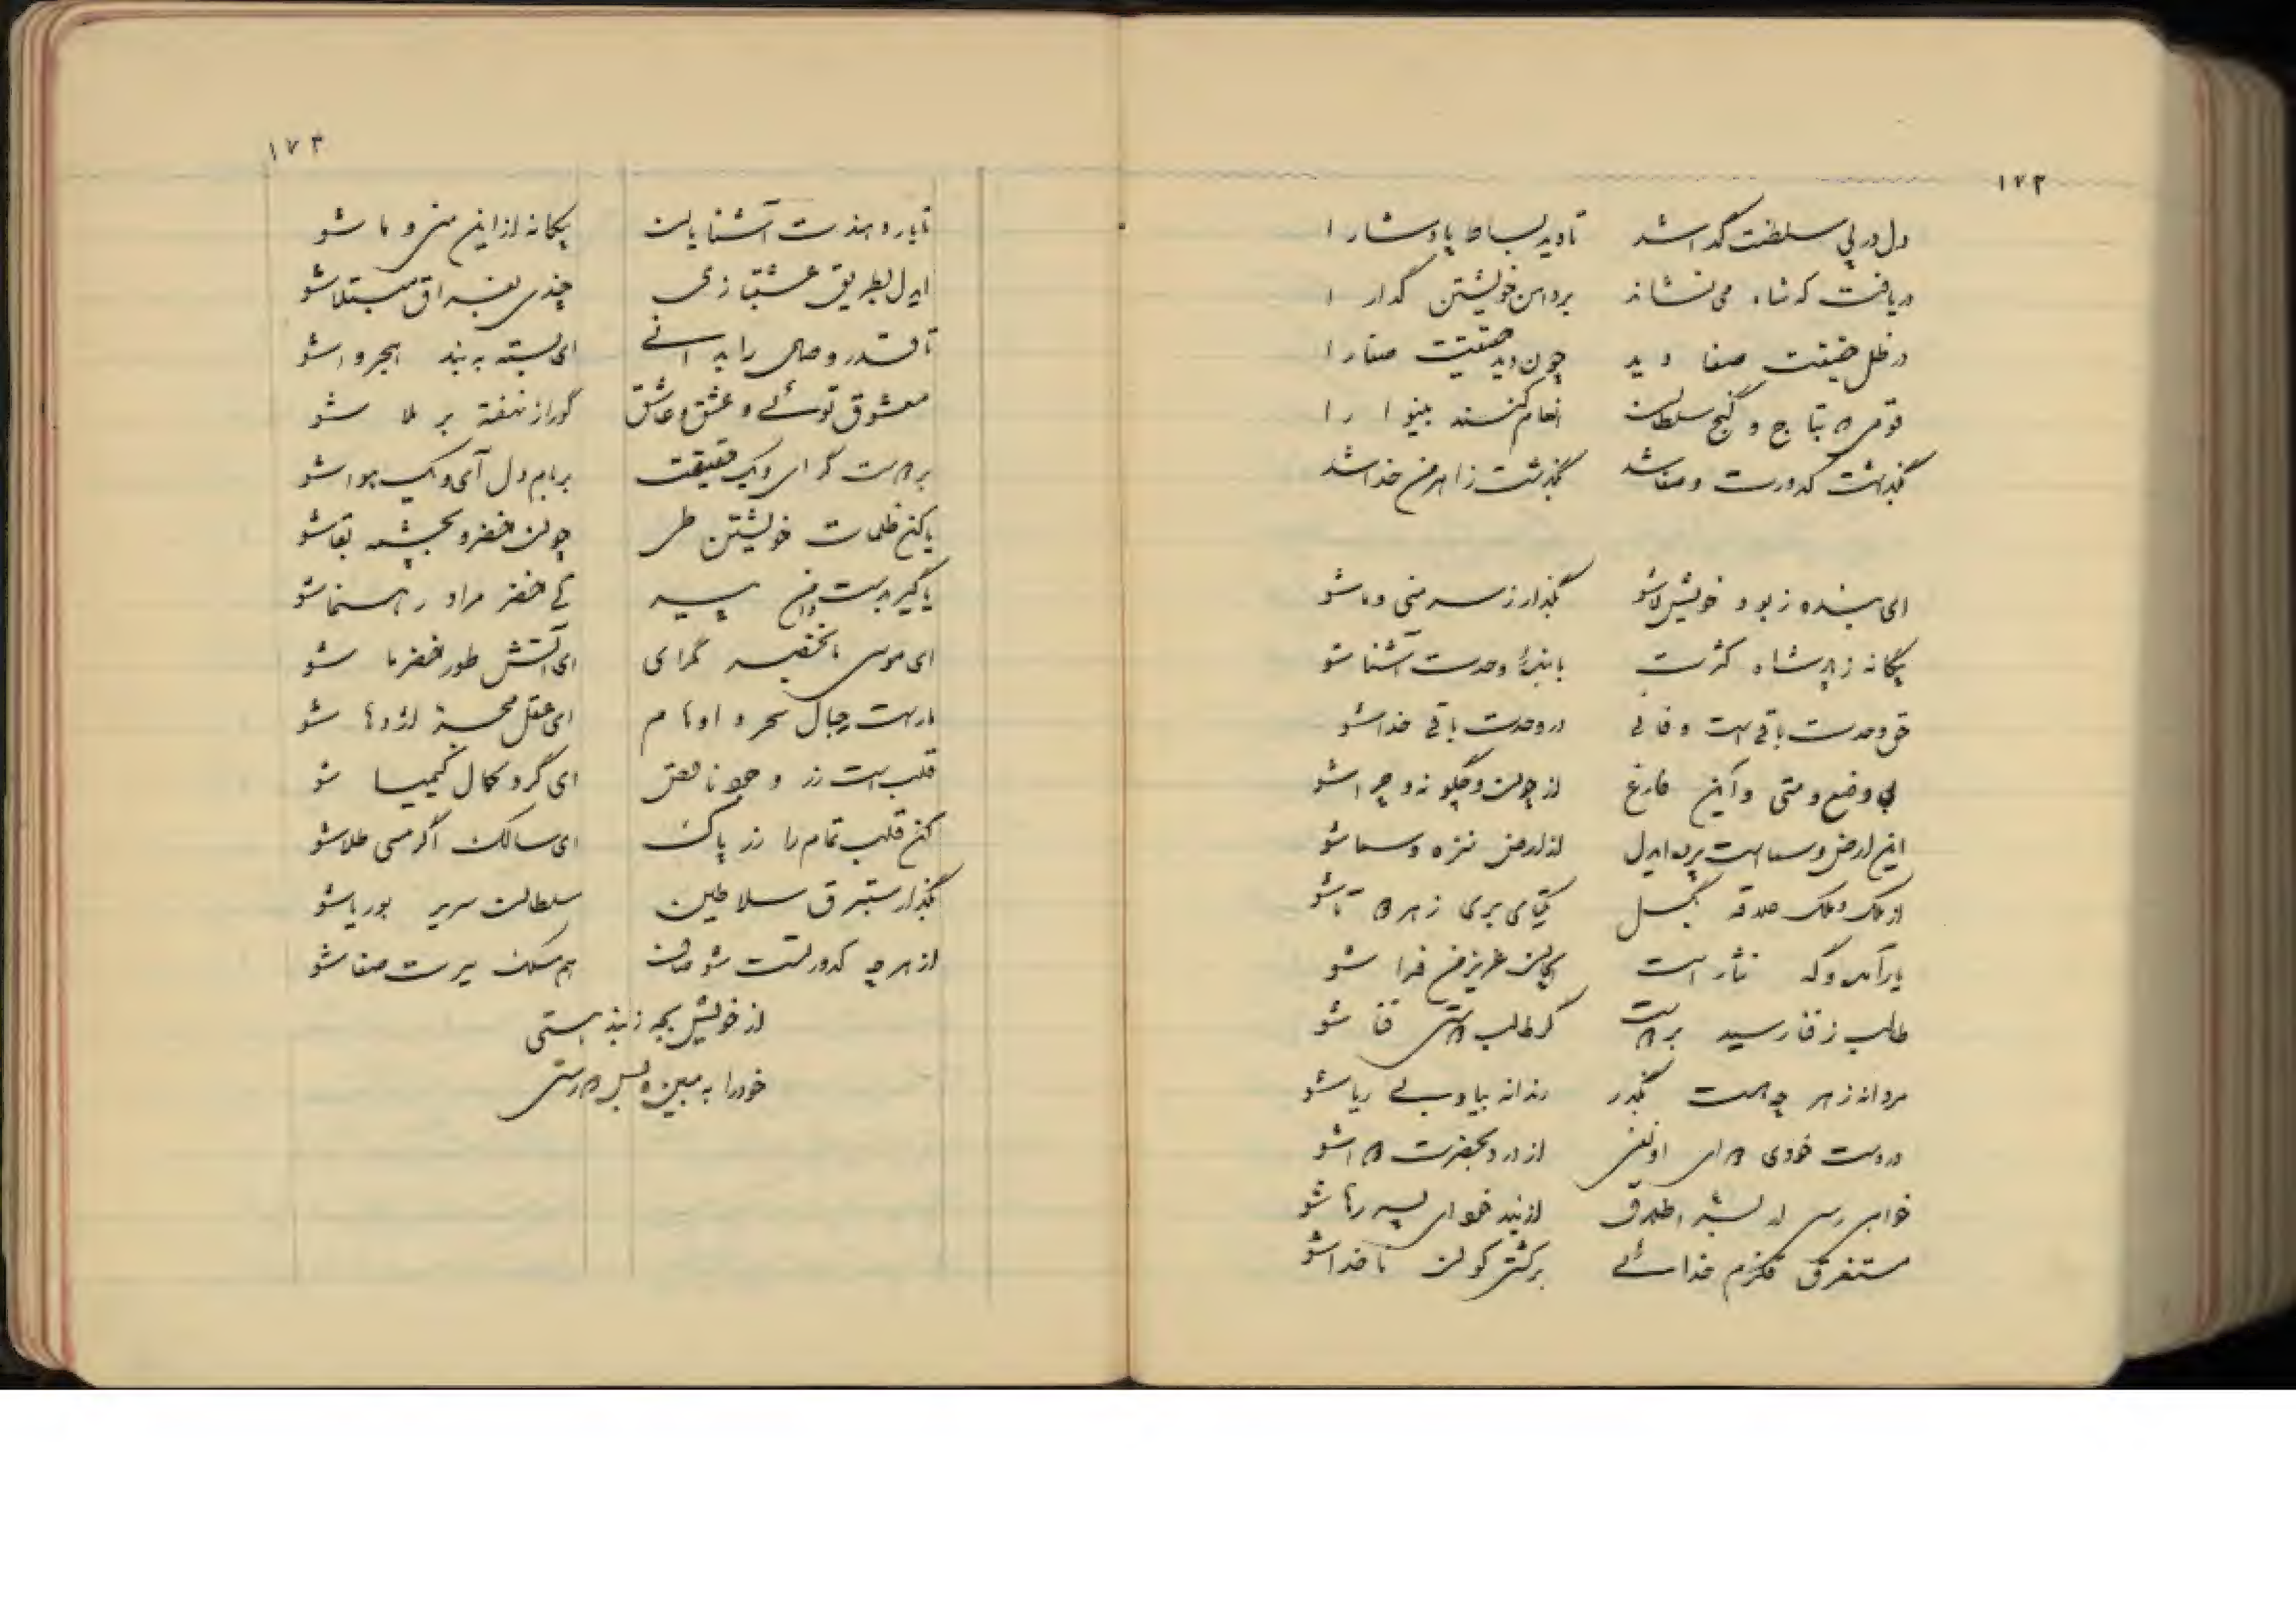 ۱۷۲
دل در پی سلطنت گدا شد تا دید بساط پادشا را
دریافت که شاه می نشاند بردامن خویشتن گدا را
در ظل حقیقت صفا دید چون دید حقیقت صفا را
قومی که بتاج و گنج سلطان انعام کنند بینوا را
بگذاشت کدورت و صفا شد بگذشت ز اهرمن خدا شد
ای بنده ز بود خویش لا شو بگذار ز سر منی و ما شو
بیگانه ز هر شاه کثرت با بندهٔ وحدت آشنا شو
حق وحدت باقی است و فانی در وحدت باقی خدا شو
بی وضع و متی و این فارغ از چون و چگونه و چرا شو
این ارض و سماست پرده ایدل از ارض نزه و سما شو
از ملک و ملک علاقه بگسل یکتای بری ز هر دو تا شو
یار آمد و گه نثار است ای جان عزیز من فدا شو
طالب ز فنا رسید بر هست گر طالب هستی فنا شو
مردانه ز هر چه هست بگذر رندانه بیا و بی ریا شو
در دست خودی
خواهی رسی از بشر اطلاق از بند خود ای پسر رها شو
مستغرق قلزم خدائی بر کشتی کون ناخدا شو
۱۷۳
تا یار دهدت آشنایان بیگانه از این من و ما شو
ایدل بطریق عشقبازی چندی بفراق مبتلا شو
تا قدر وصال را بدانی ای بسته به بند هجر وا شو
معشوق توئی و عشق و عاشق گو راز نهفته بر ملا شو
بر هست گرای و یک حقیقت بر بام دل آی و یک هوا شو
یا کن ظلمات خویشتن طی چون خضر و بچشمه بقا شو
یا گیر بدست دامن پیر کی خضر مراد رهنما شو
ای موسی ما بخضر گرای ای آتش طور خضر ما شو
مار است حبال سحر و اوهام ای عقل مجسته اژدها شو
قلب است زر وجود ناقص ای گرد کمال کیمیا شو
کن قلب تمام را زر پاک ای سالک اگر مسی طلا شو
بگذار ستبرق سلاطین سلطان سریر بوریا شو
از هر چه کدورتست شو صاف هم مسلک سیرت صفا شو
از خویش بجه ز بند هستی
خود را به مبین و بس که رستی